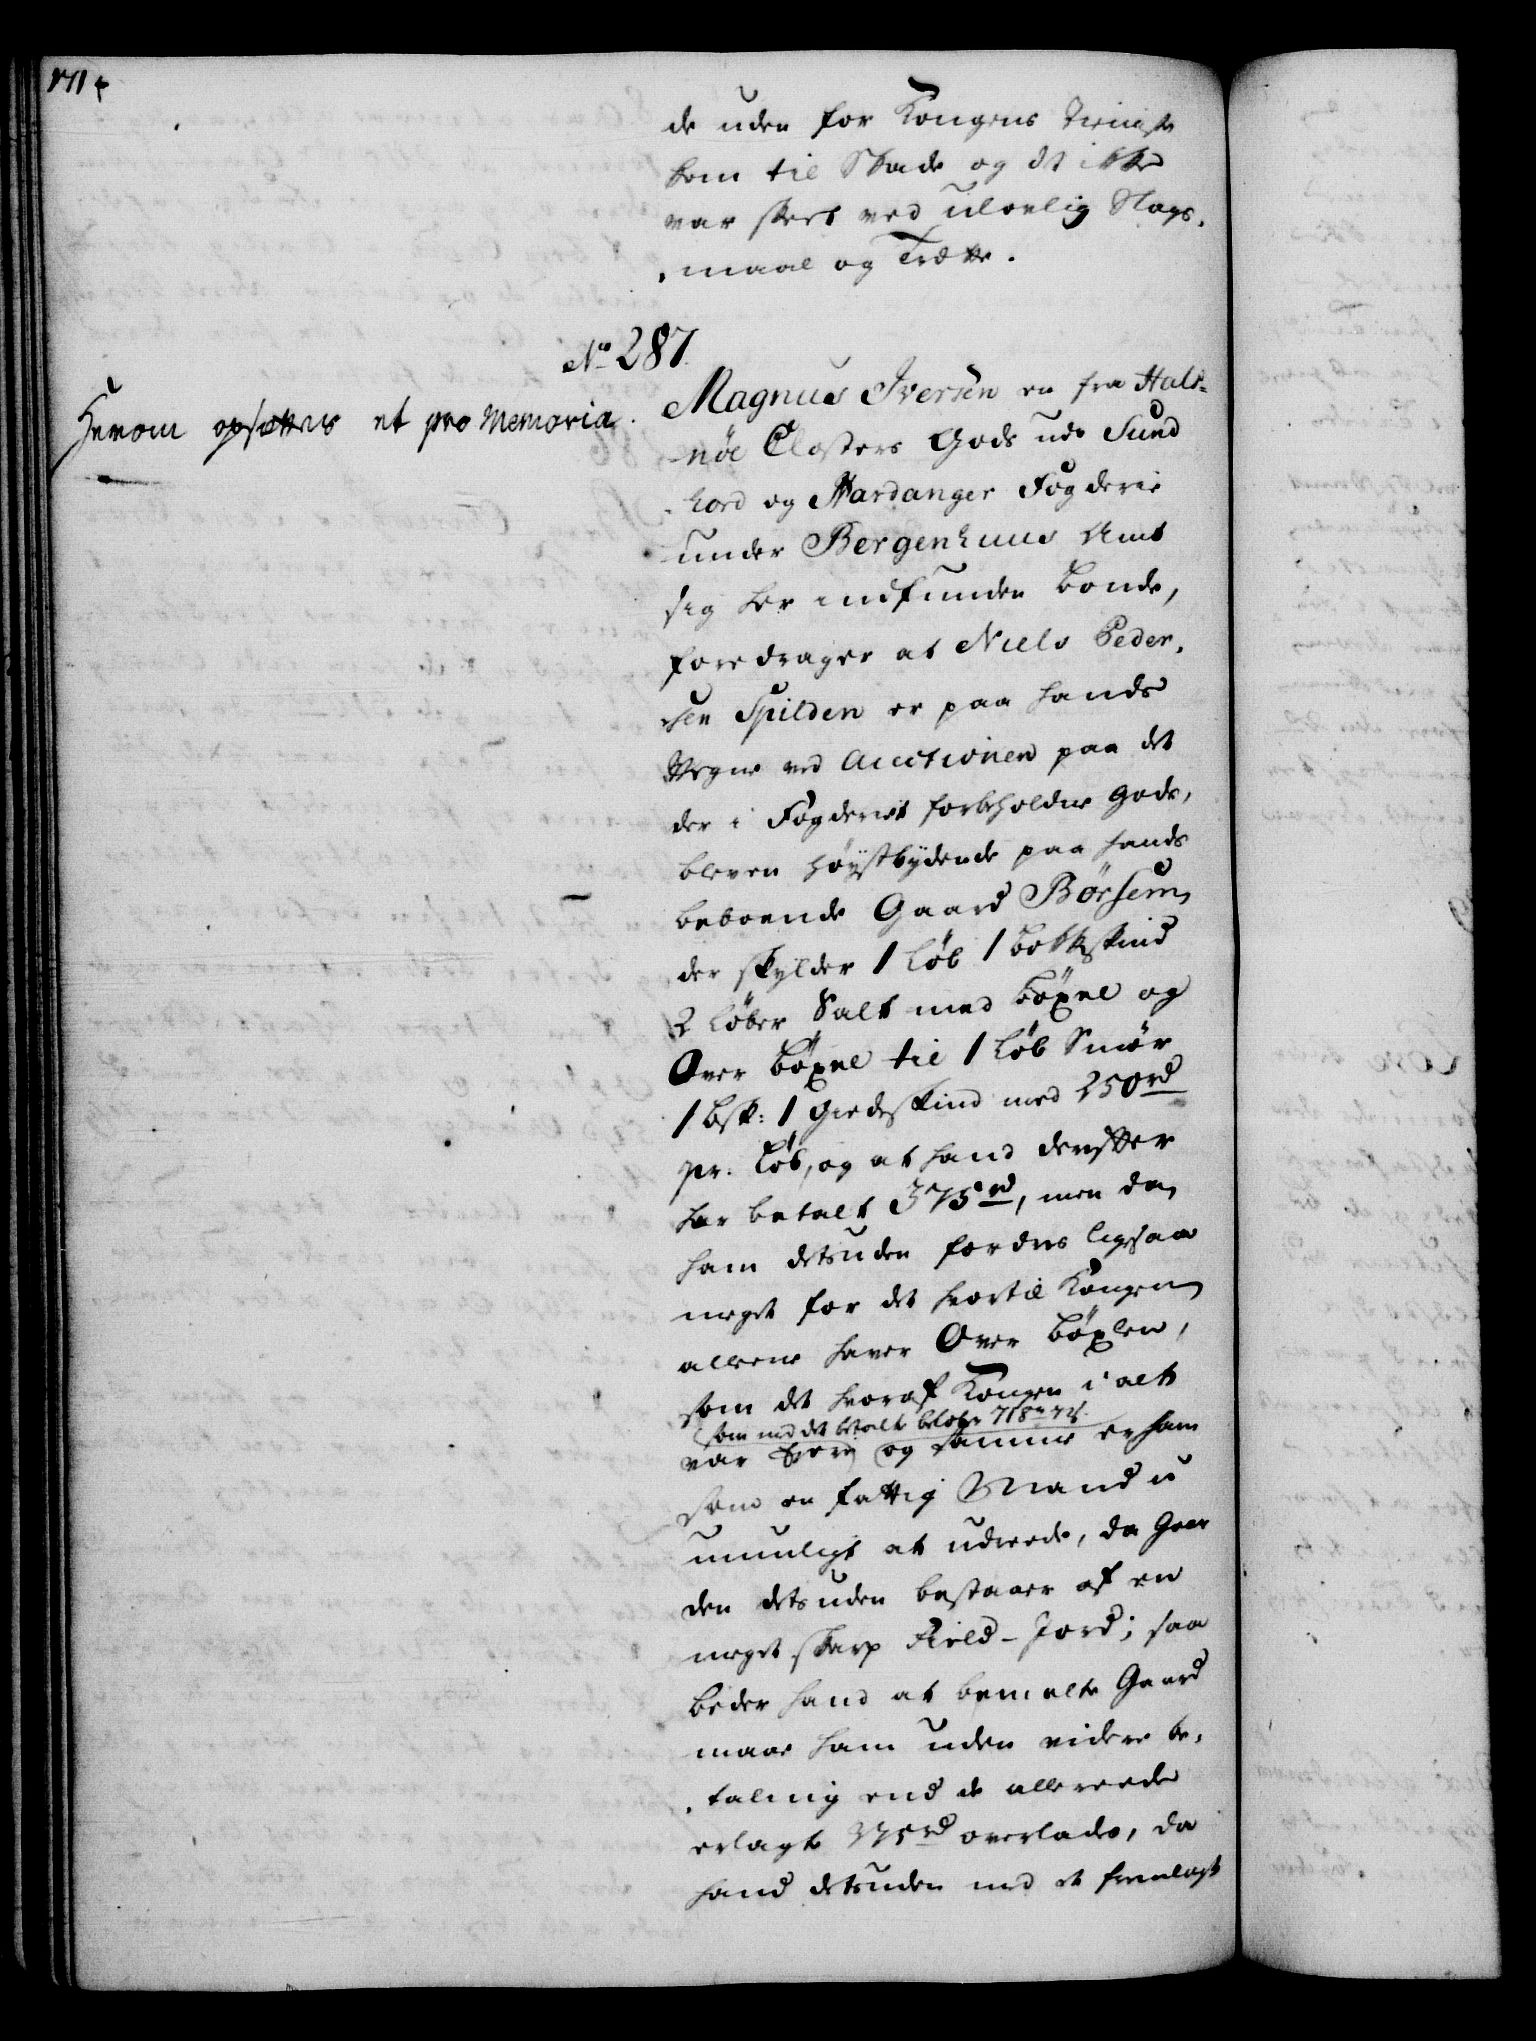 de uden for Kongens Tieniste
kom til Skade og dt ikke
var skeet ved ulovlig Slags-
-maal og Trætte.
No 287.
Herom opsættes et pro Memoria.
Magnus Iversen en fra Hals-
-nöe Closters Gods udi Sund
-hord og Hardanger Fogderie
under Bergenhuus Amt
sig her indfunden Bonde,
foredrager at Niels Peder-
-sen Spilden er paa hands
Vegne ved Auctionen paa det
der i Fogderiet forbeholdne Gods,
bleven høystbydende paa hands
beboende Gaard Börsem,
der skylder 1 Løb 1 bokskind
2 Løber Salt med Böxel og
Over böxel til 1 Løb Smør
1 bsk: 1 Giedeskind med 250 rd
pr. Løb, og at hand derefter
har betalt 375 rd, men da
ham detsuden fordres ligesaa
meget for det hvortil Kongen
alleene haver Over böxlen,
som det hvoraf Kongen i alt
som med det betalte beløber 718 rd 72 s.
var Eyere og samme er ham
som en fattig Mand u
umueligt at udreede, da Gaar
den detsuden bestaaer af en
meget skarp Field-Jord; saa
beder hand at bemelte Gaard
maae ham uden videre be-
-taling end de allereede
erlagte 375 rd overlades, da
hand detsuden med et fremlagt